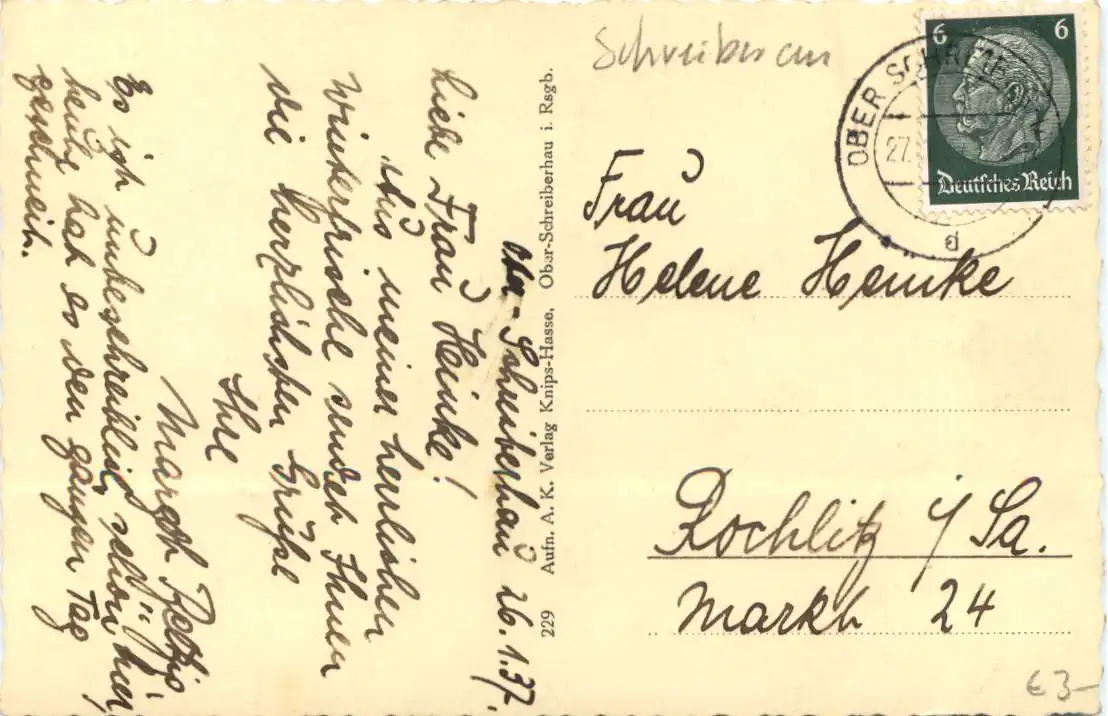 Ober-Schreiberhau 26.1.37.
Liebe Frau Heinke!
Aus meiner herrlichen
Winterfrische sendet Ihnen
die herzlichsten Grüße
Ihre
Margot
Es ist unbeschreiblich schön hier,
heute hat es den ganzen Tag
geschneit.
229 Aufn. A. K. Verlag Knips-Hasse, Ober-Schreiberhau i. Rsgb.
Schreiberau
6 6
Deutsches Reich
OBER SCHREIBERH
27.
d
Frau
Helene Heinke
Rochlitz i/Sa.
Markt 24
€3-